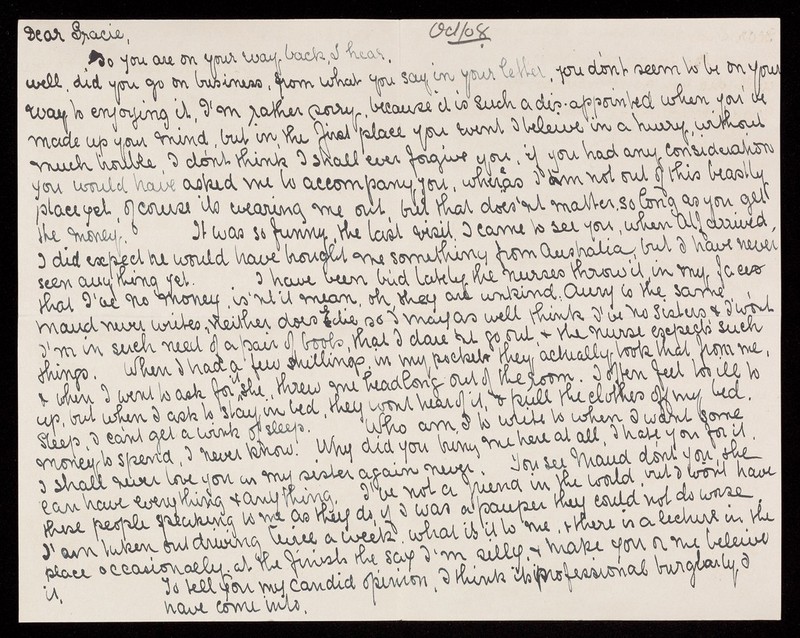 Dear Gracie,
Oct/08
So you are on your way back, I hear.
well, did you go on business, from what you say in your letter, you don't seem to be on your
way to enjoying it, I'm rather sorry, because it is such a dis-appointed when you've
made up your mind, but in the first place you went I beleive in a hurry, without
much trouble, I don't think I shall ever forgive you, if you had any consideration
you would have asked me to accompany you, whereas I am not out of this beastly
place yet, of course its wearing me out, but that does'nt matter so long as you get
the money. It was so funny, the last visit I came to see you, when Alf arrived,
I did expect he would have brought me something from Australia, but I have never
seen anything yet. I have been bad lately, the nurses throw it in my face
that I've no money, is'nt it mean, oh, they are unkind. Aury is the same,
maud never writes, neither does Edie, so I may as well think I've no sisters & I won't
I'm in such need of a pair of boots, that I dare not go out, & the nurse expects such
things. When I had a few shillings in my pocket they actually took that from me,
& when I went to ask for it she threw me headlong out of the room. I often feel too ill to
up, but when I ask to stay in bed, they won't hear of it, & pull the clothes off my bed.
Sleep, I can't get a wink of sleep. Who am I to write to when I want some
money to spend, I never know! Why did you bring me here at all, I hate you for it.
I shall never love you as my sister again never. You see Maud don't you, she
can have everything & anything. I've not a friend in the world, but I won't have
these people speaking to me as they do, if I was a pauper they could not do worse
I'am taken out driving twice a week, what is it to me, & there is a lecture in the
place occasionally at the finish the say I'm silly, & make you or me beleive
it. To tell you my candid opinion, I think its professional burglary I
have come into.